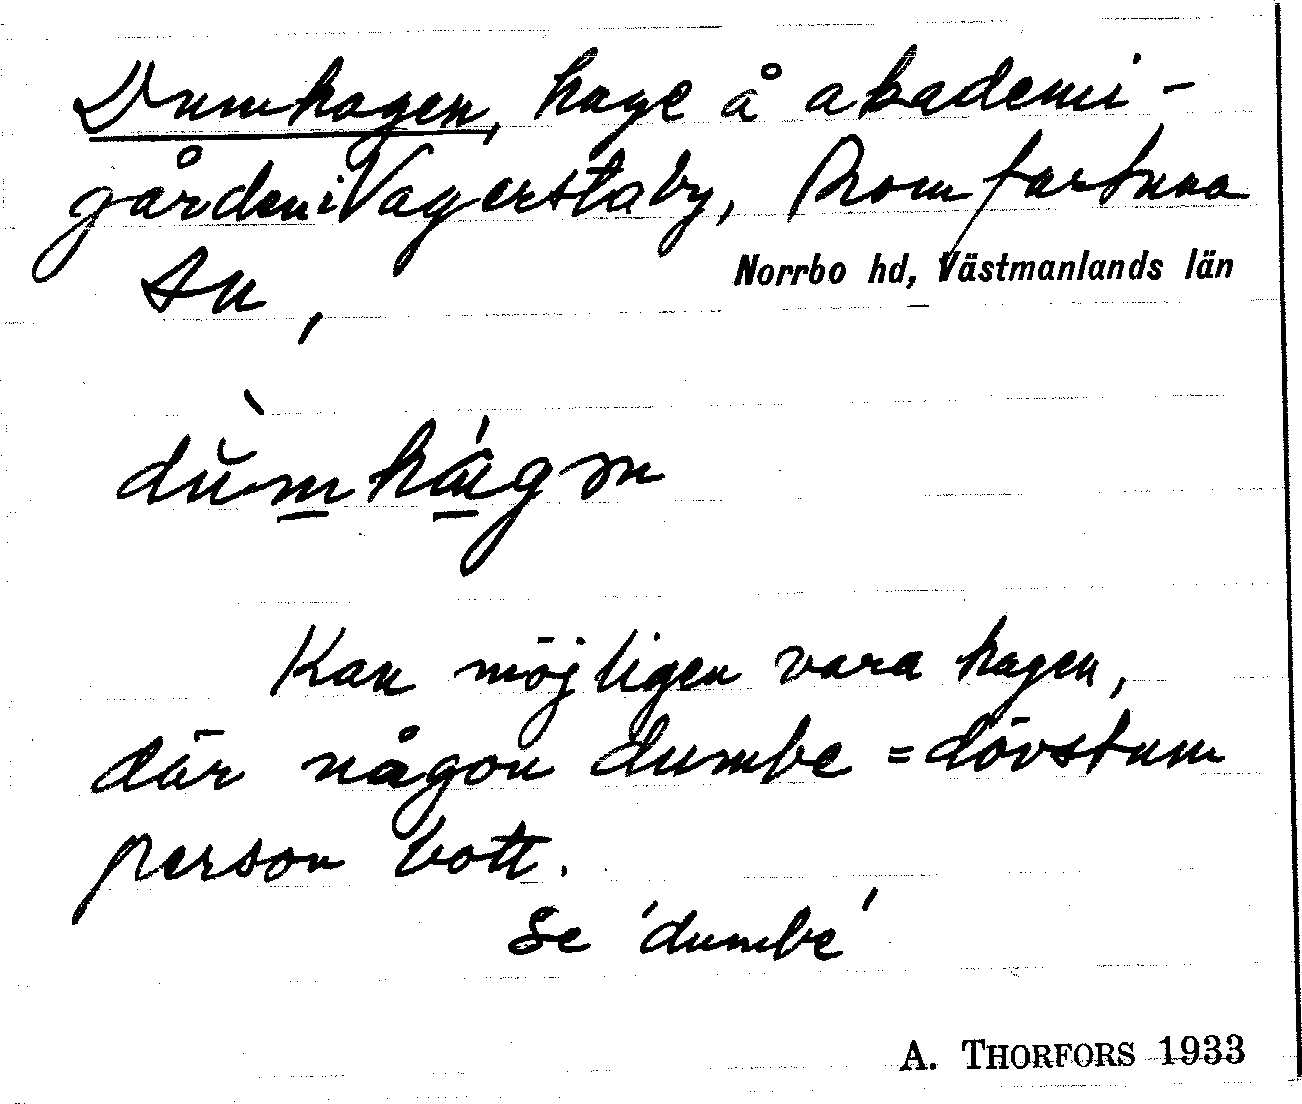 Dumhagen, hage å akademi-
gården i Vagerstaby, Romfartuna
sn,
Norrbo hd, Västmanlands län
dùmhágən
Kan möjligen vara hagen,
där någon dumbe = dövstum
person bott.
Se 'dumbe'
A. THORFORS 1933